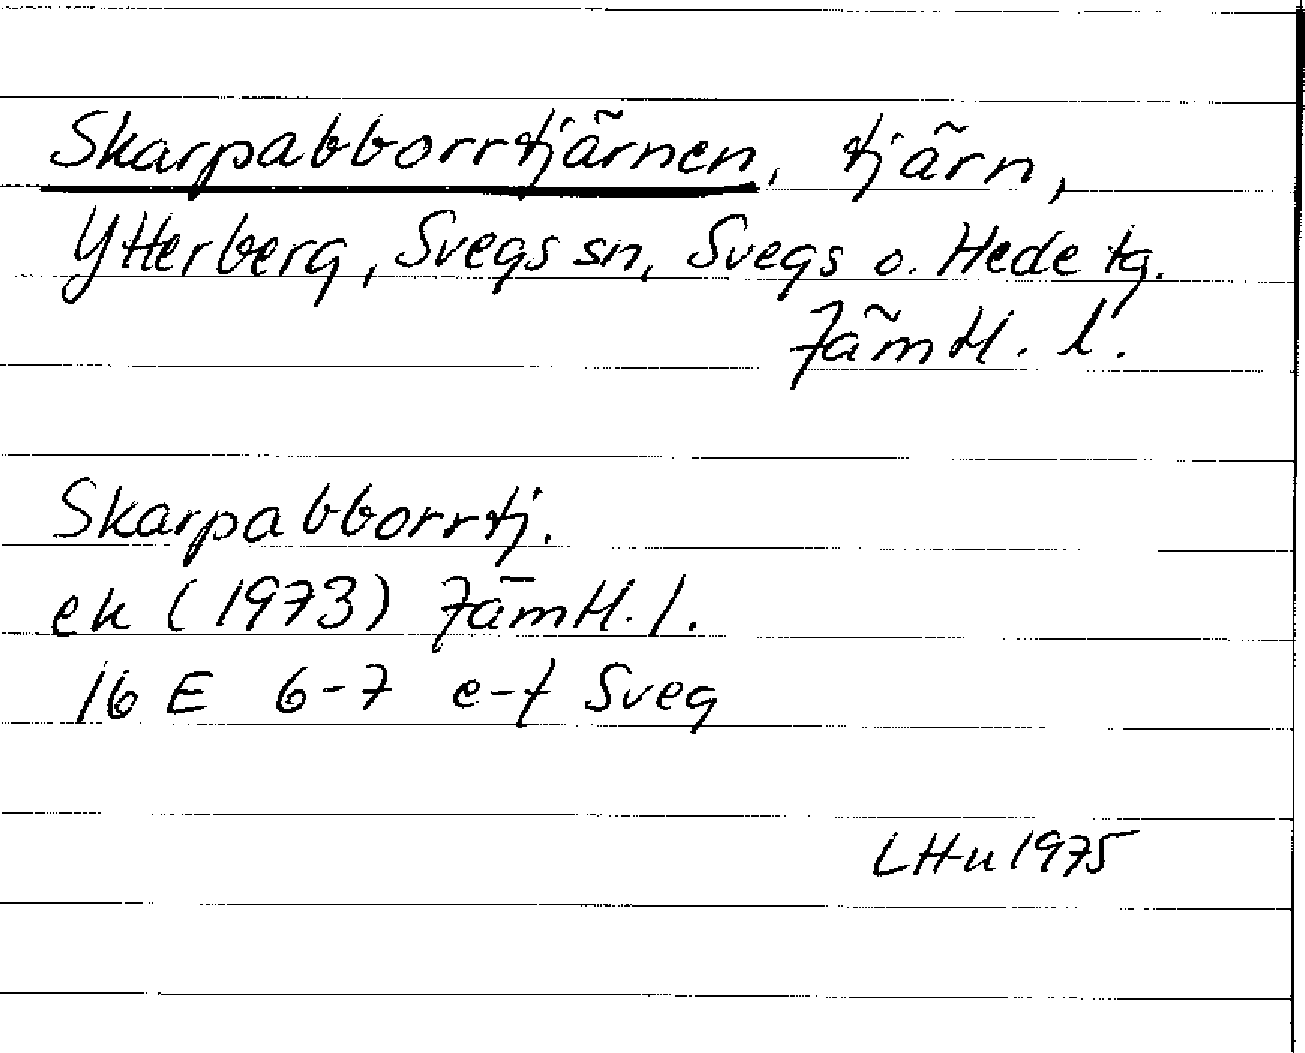 Skarpabborrtjärnen, tjärn,
Ytterberg, Svegs sn, Svegs o. Hede tg.
Jämtl. l.
Skarpabborrtj.
ek (1973) Jämtl. l.
16 E 6-7 e-f Sveg
LHu 1975